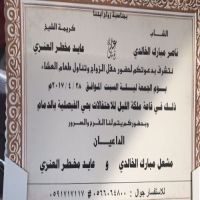 بمناسبة زواج ابننا
الشاب
كريمة الشيخ
ناصر مبارك الخالدي
عايد مخطر العنزي
نتشرف بدعوتكم لحضور حفل الزواج وتناول طعام العشاء
يوم الجمعة ليلة السبت الموافق ٢٠١٧/٤/٢٨م
وذلك في قاعة ملكة الليل للاحتفالات بحي الفيصلية بالدمام
وبحضوركم يتم لنا الفرح والسرور
الداعيان
مشعل مبارك الخالدي و عايد مخطر العنزي
للاستفسار جوال :